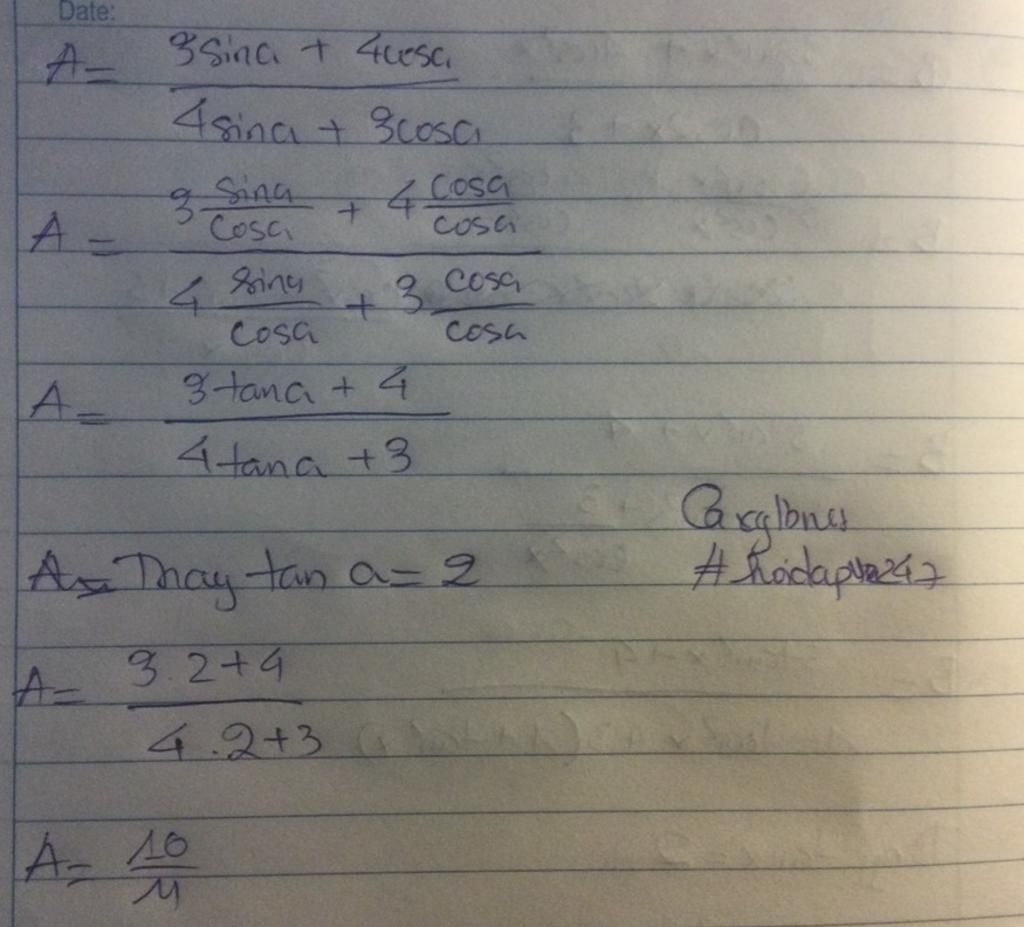 Date:
A = 3sina + 4cosa / 4sina + 3cosa
A = 3 sina/cosa + 4 cosa/cosa / 4 sina/cosa + 3 cosa/cosa
A = 3tana + 4 / 4tana + 3
A = Thay tan a = 2
A = 3.2+4 / 4.2+3
A = 10/11